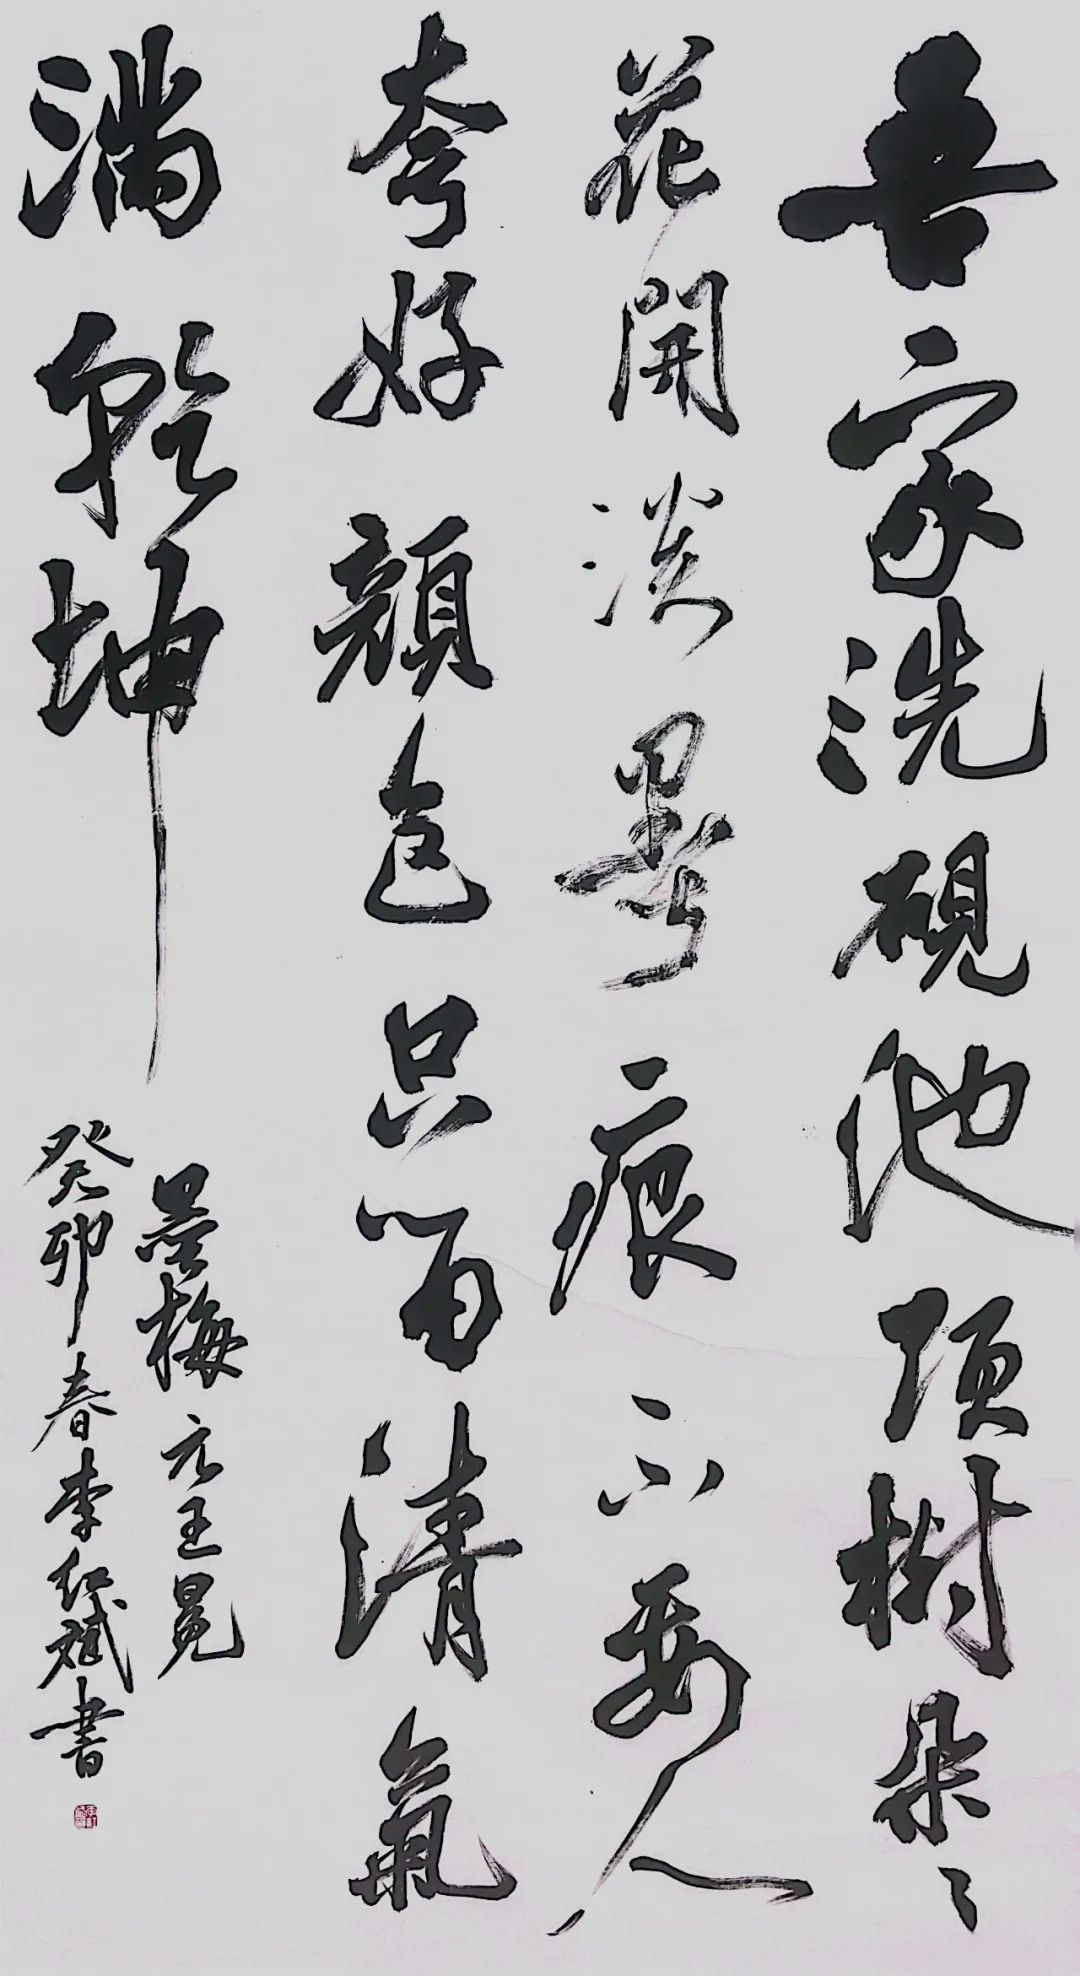 吾家洗硯池頭樹朵々
花開淡墨痕不要人
夸好顔色只留清氣
滿乾坤
墨梅 元王冕
癸卯春李红斌書